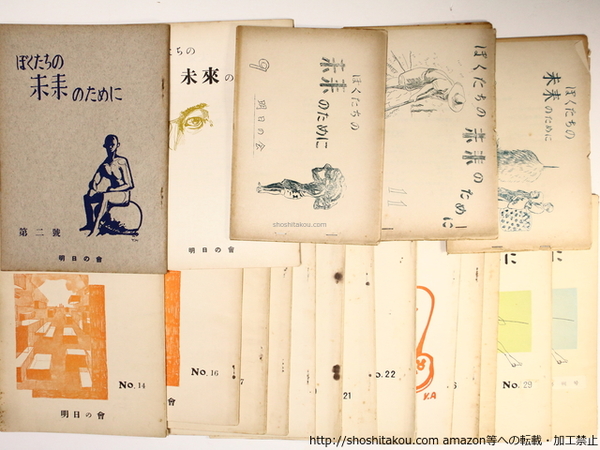 ぼくたちの
未来のために
第二號
明日の會
ちの
未來の
9
ぼくたちの
未来のために
明日の会
shoshitakou.com
ぼくたちの
未来のために
11
ぼくたちの
未来のために
No.14
明日の會
No.16
7
21
o.22
V.A
6
に
No.29
に
http://shoshitakou.com amazon等への転載・加工禁止